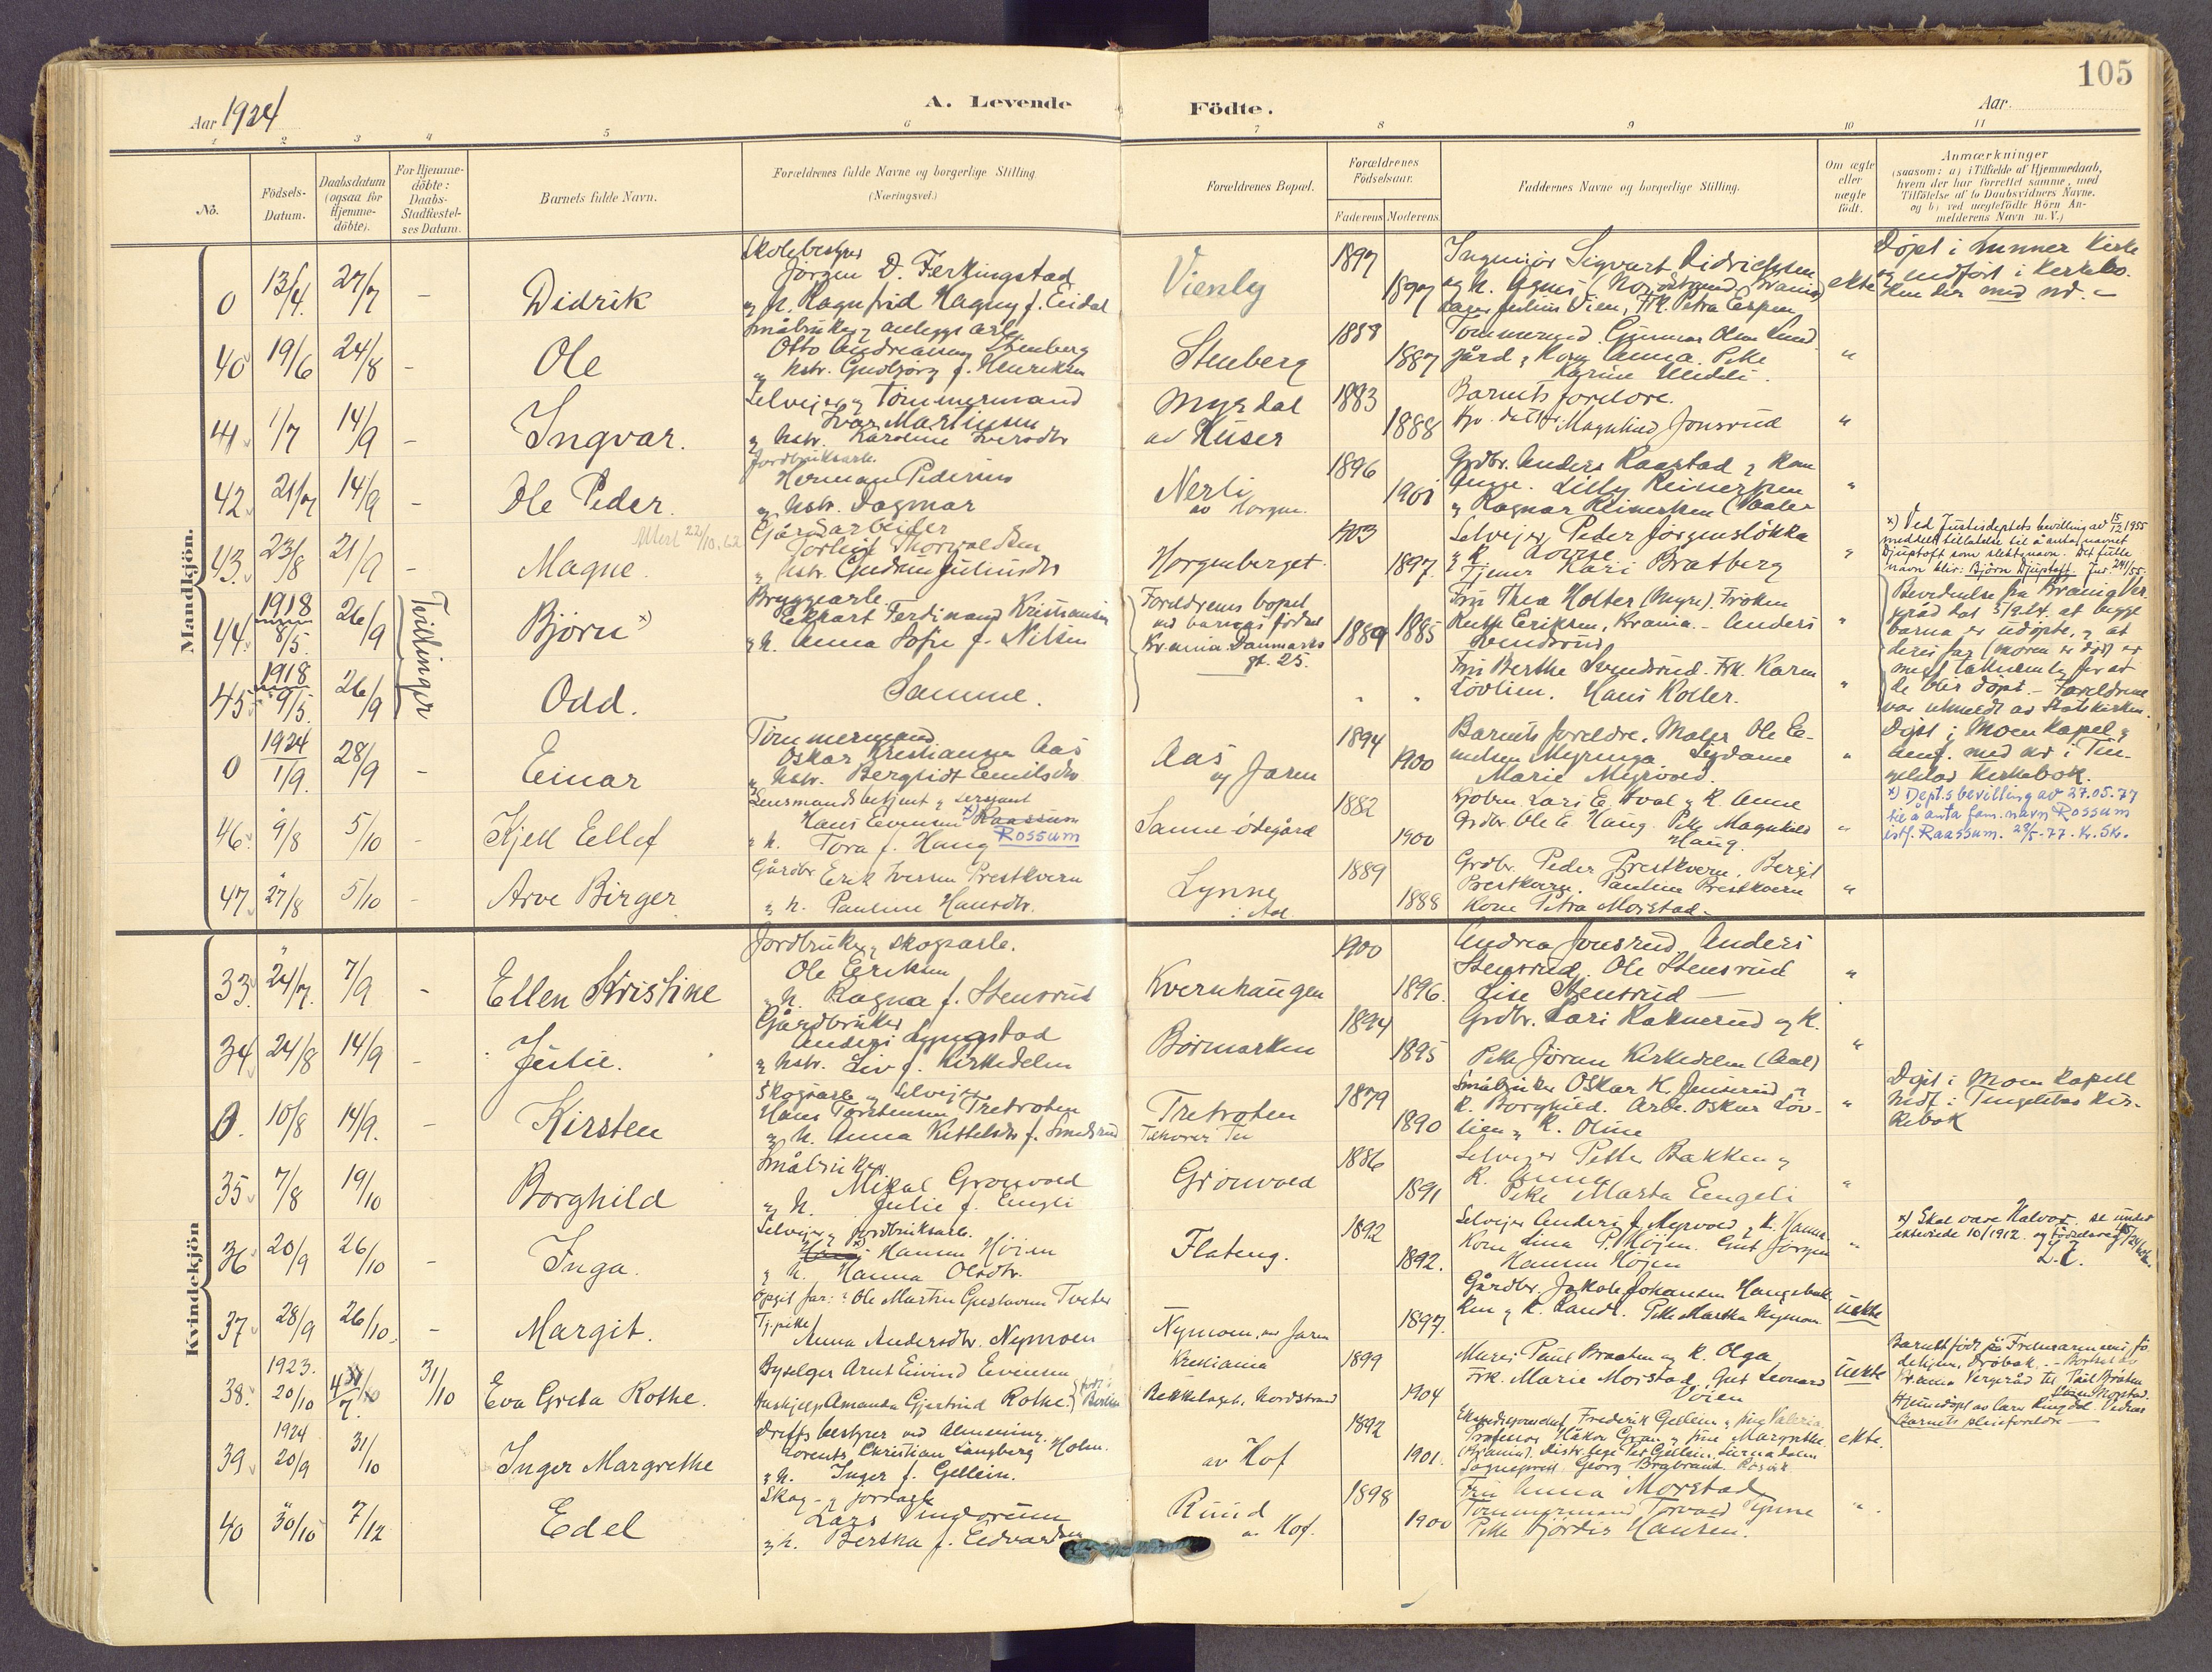 105
Aar 1924
A. Levende Födte.
Aar
1 2 3 4 5 6 7 8 9 10 11
No.
Födsels-Datum.
Daabsdatum (ogsaa for Hjemme-döbte).
For Hjemme-döbte: Daabs-Stadfæstel-ses Datum.
Barnets fulde Navn.
Forældrenes fulde Navne og borgerlige Stilling
(Næringsvei.)
Forældrenes Bopæl.
Forældrenes Födselsaar.
Faderens Moderens
Faddernes Navne og borgerlige Stilling.
Om ægte eller uægte födt.
Anmærkninger
(saasom: a) i Tilfælde af Hjemmedaab,
hvem der har forrettet samme, med
Tilföielse af to Daabsvidners Navne.
og b) ved uægtefödte Börn An-
melderens Navn m. V.)
Mandkjön.
0 13/4. 27/7 - Didrik
Skolebestyrer
Jørgen D. Ferkingstad
og h. Ragnfrid Magny f. Eidal
Vienly
1897 1897
Ingeniør Sigvart Didriksen
og h. Agnes
ekte
Døpt i Lunner kirke
og indført i kirkebo-
ken der med nr. -
40 19/6 24/8 - Ole
Småbruker og anleggsarb.
Otto Andreassen Stenberg
og hstr. Gudbjørg f. Henriksen
Stenberg
1888 1887
Tømmermand Gunnar Olsen Lund-
gård og kone Anna. Pike
Karine
"
41 1/7 14/9 - Ingvar.
Selveier og Tømmermand
Ivar Martinsen
og hstr. Karoline Iversdtr
Myrdal
av Kuser
1883 1888
Barnets foreldre.
Magnhild Jonsrud
"
42 21/7 14/9 - Ole Peder.
Jordbruksarb.
Herman Pedersen
og hstr. Dagmar
Nerli
av Horgen.
1896 1901
Grdbr. Anders Raastad og kone
Lilly Reinertsen
og Ragnar Reinertsen
"
43. 23/8 21/9 - Magne.
Attest 22/10.62
Gårdsarbeider
Torleif Thorvaldsen
og hstr. Gudrun Juliusdtr
Horgenberget.
1903 1897.
Selveier Peder Jørgensløkka
og k. Lovise
Tjener Kari Bratberg
"
x) Ved Justisdeptets bevilling av 15/12 1955
meddelt tillatelse til å anta navnet
Djuptoft som slektsnavn. Det fulle
navn blir: Bjørn Djuptoft. Jnr. 241/55.
44. 1918 8/5. 26/9 Tvillinger Bjørn x)
Bryggearb.
Ekhart Ferdinand Kristiansen
og h. Anna Sofie f. Nilsen
Foreldrenes bopel
ved barnas fødsel
Kr.ania. Danmarks
gt. 25.
1889 1885
Fru Thea Holter (Myre). Frøken
Ruth Eriksen, Krania. - Anders
Svendsrud
"
Bevidnelse fra Krania Ver-
geråd dat 5/9.24. at begge
barna er udøpte, og at
deres far (moren er død) er
meget taknemlig for at
de blir døpt. - Foreldrene
var utmeldt av Statskirken.
45 1918 9/5. 26/9 Odd.
Samme.
Fru Berthe Svendsrud. Frk. Karen
Løvlien. Hans Koller.
"
0 1924 1/9. 28/9 - Einar
Tømmermand
Oskar Kristiansen Aas
og hstr. Bergliot Emilsdtr
Aas
og Jaren
1894 1900
Barnets foreldre. Maler Ole E-
milsen Myrenga. Sydame
Marie Myrvold.
"
Døpt i Moen Kapel og
anf. med nr i Tin-
gelstad Kirkebok.
46. 9/8 5/10 - Kjell Ellef
Lensmandsbetjent og sersjant
Hans Evensen x) Raassum
Rossum
og h. Tora f. Haug
Sanne-ødegård
1882 1900
Kjøbm. Lars E. Hval og k. Anne
Grdbr. Ole E. Haug. Pike Magnhild
Haug.
"
x) Dept.s bevilling av 27.05.77
til å anta fam.navn Rossum
istf. Raassum. 28/5-77. Kr. Sk.
47 27/8 5/10 - Arve Birger
Gårdbr Erik Iversen Prestkvern
og h. Pauline Hansdtr.
Lynne
i Aal
1889 1888
Grdbr. Peder Prestkvern, Bergit
Prestkvern. Pauline Prestkvern
Kone Petra Morstad.
"
Kvindekjön
33. 24/7. 7/9 - Ellen Kristine
Jordbruker og skogsarb.
Ole Eriksen
og h. Ragna f. Stensrud
Kvernhaugen
1900 1896.
Andrea Jonsrud, Anders
Stensrud. Ole Stensrud
Lise Stensrud -
"
34. 24/8 14/9 - Julie.
Gårdbruker
Anders Lyngstad
og hstr. Liv f. Kirkedelen
Børmarken
1894 1895
Grdbr. Lars Raknerud og k.
Pike Jørun Kirkedelen (Aal)
"
0. 10/8 14/9. - Kirsten
Skogsarb. og Selveier
Hans Torstensen Tretroten
og h. Anna Kittelsdtr f. Smedsrud
Tretroten
1879 1890
Småbruker Oskar K. Jensrud og
k. Borghild. Arb. Oskar Løv-
lien og k. Oline
"
Døpt i Moen kapell
indf. i Tingelstad kir-
kebok
35 7/8 19/10 - Borghild
Småbruker
Mikal Grønvold
og h. Julie f. Engli
Grønvold
1886 1891
Selveier Petter Bakken og
k. Anna
Pike Marta Engeli
"
36 20/9 26/10 - Inga.
Selveier og jordbruksarb.
x) Hansen Højen
og h. Hanna Olsdtr.
Flateng.
1892 1892.
Selveier Anders J. Myrvold og k. Hanna.
Kone Lina P. Højen. Gut Jørgen
Hansen Højen
"
x) Skal være Halvor. se under
ekteviede 10/1912. og fødselsreg.
37 28/9 26/10. - Margit.
Opgit far: Ole Martin Gustavsen Tveter
Tj.pike
Anna Andersdtr. Nymoen
Nymoen, ved Jaren
1897.
Gårdbr. Jakob Johansen Haugsbak-
ken og k. Randi. Pike Martha Nymoen
uekte
38. 1923. 20/10 4/7. 31/10 Eva Greta Rothe.
Byselger Arnt Eivind Evensen
Hushjelp Amanda Gjertrud Rothe. født i Berlin
Kristiania
Bekkelaget, Nordstrand
1899 1904
Murer Paul Braaten og k. Olga
Frk. Marie Morstad, Gut Leonard
Vøien
uekte
Barnet født på Frelsesarmeens fø-
dehjem, Drøbak. - Bortsat av
Kr.ania Vergeråd til Paul Bråten
Morstad.
Hjemmedøpt av Lars Ringdal. Vidner
Barnets pleieforeldre -
39 1924 20/9 31/10 Inger Margrethe
Driftsbestyrer ved Almenning.
Lorents Christian Langberg Holm.
og h. Inger f. Gellein.
av Hof
1892 1901.
Ekspedisjonschef Frederik Gellein og frue Valeria.
Professor Håkon Gran og frue Margrethe.
(Krania). Distr. lege Per Gellein. Surnadalen
Sogneprest Georg Brabrand. Røsvik
ekte.
40 30/10 7/12 Edel
Skog- og jordarb.
Lars Vindorum
og h. Bertha f. Edvardsen
Ruud
av Hof.
1898 1900
Fru Anna Morstad
Tømmermand Torvald Lynne
Pike Hjørdis Hansen.
"